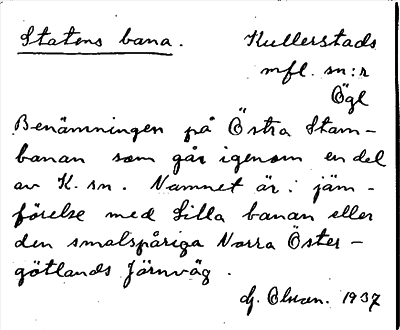 Statens bana.
Kullerstads
mfl. sn:r
Ögl
Benämningen på Östra Stam-
banan som går igenom en del
av K. sn. Namnet är i jäm-
förelse med Lilla banan eller
den smalspåriga Norra Öster-
götlands Järnväg.
1937